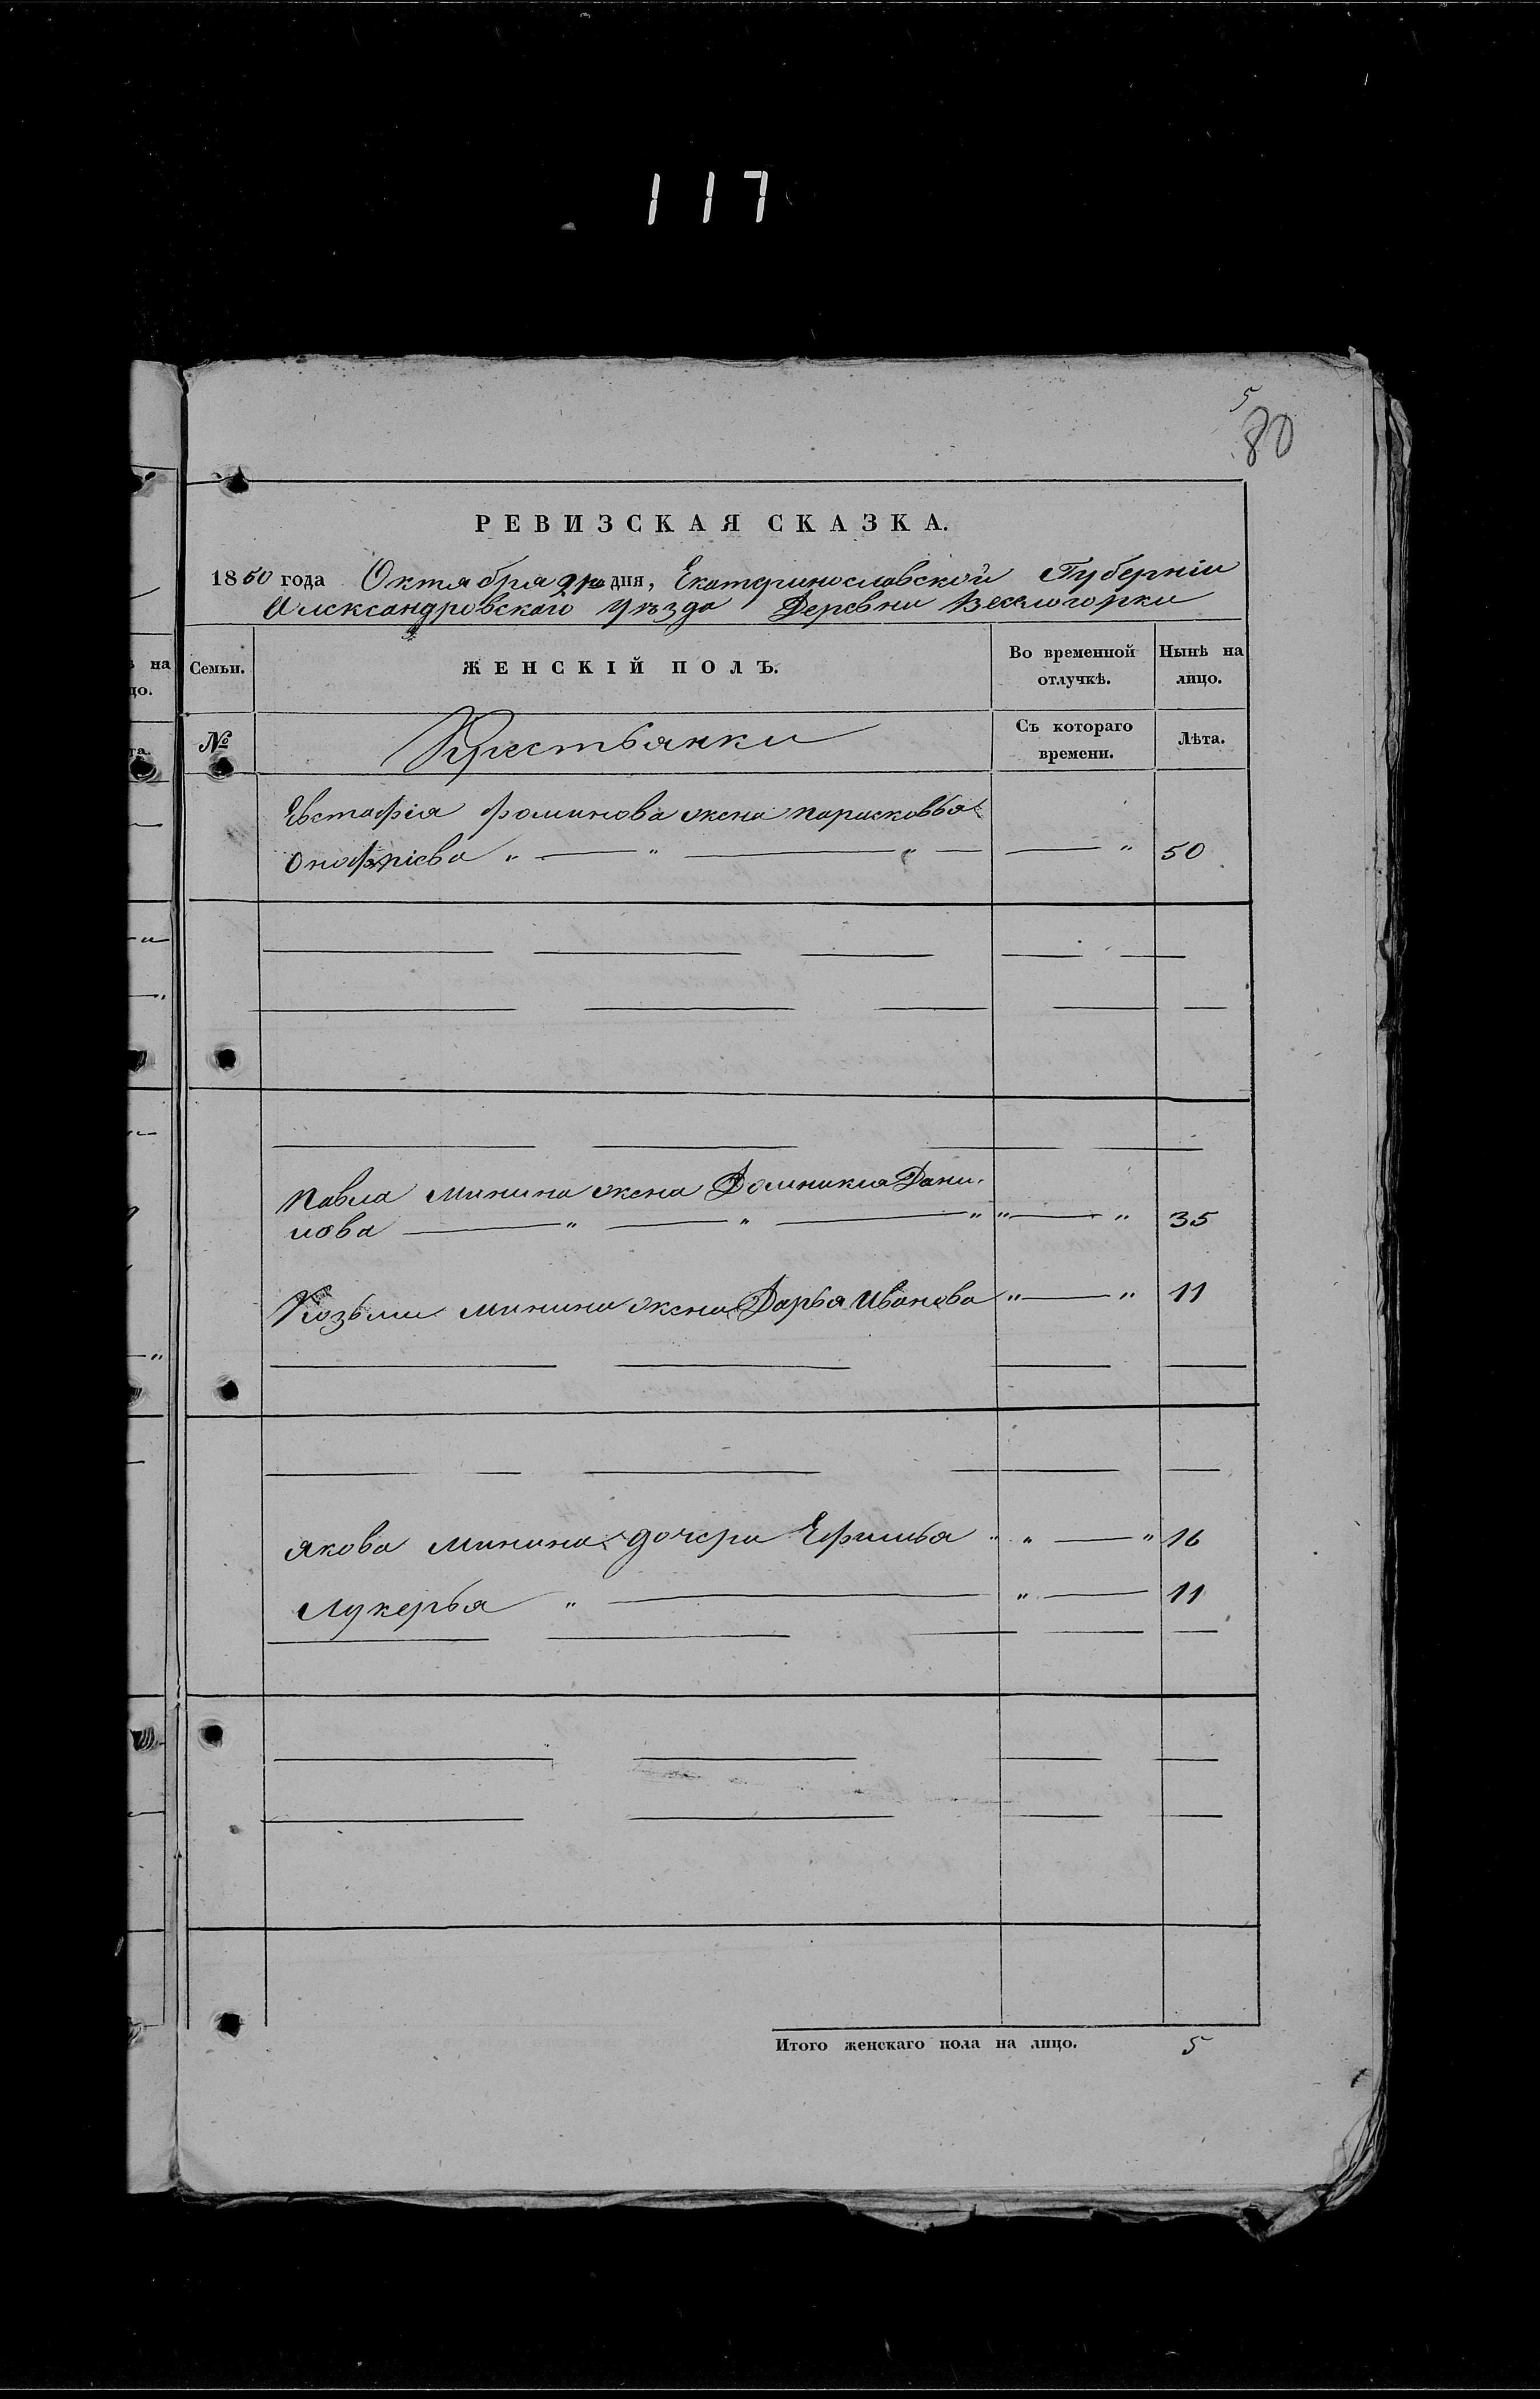 117
5
80
РЕВИЗСКАЯ СКАЗКА.
1850 года Октября 9го дня, Екатеринославской Губерніи
Александровскаго уѣзда Деревни Веселогорки
ѣ на
цо.
Семьи.
ЖЕНСКІЙ ПОЛЪ.
Во временной отлучкѣ.
Нынѣ на лицо.
та.
№
Крестьянки
Съ котораго времени.
Лѣта.
Евстафія Фоминова жена Парасковья
Онофріева " — " — " — — " 50
Павла Минина жена Домникия Дани,
лова — " — " — " " — " 35
Козьмы Минина жена Дарья Иванова " — " 11
Якова Минина дочери Ефимья " " — " 16
Лукерья " — " — 11
Итого женскаго пола на лицо. 5